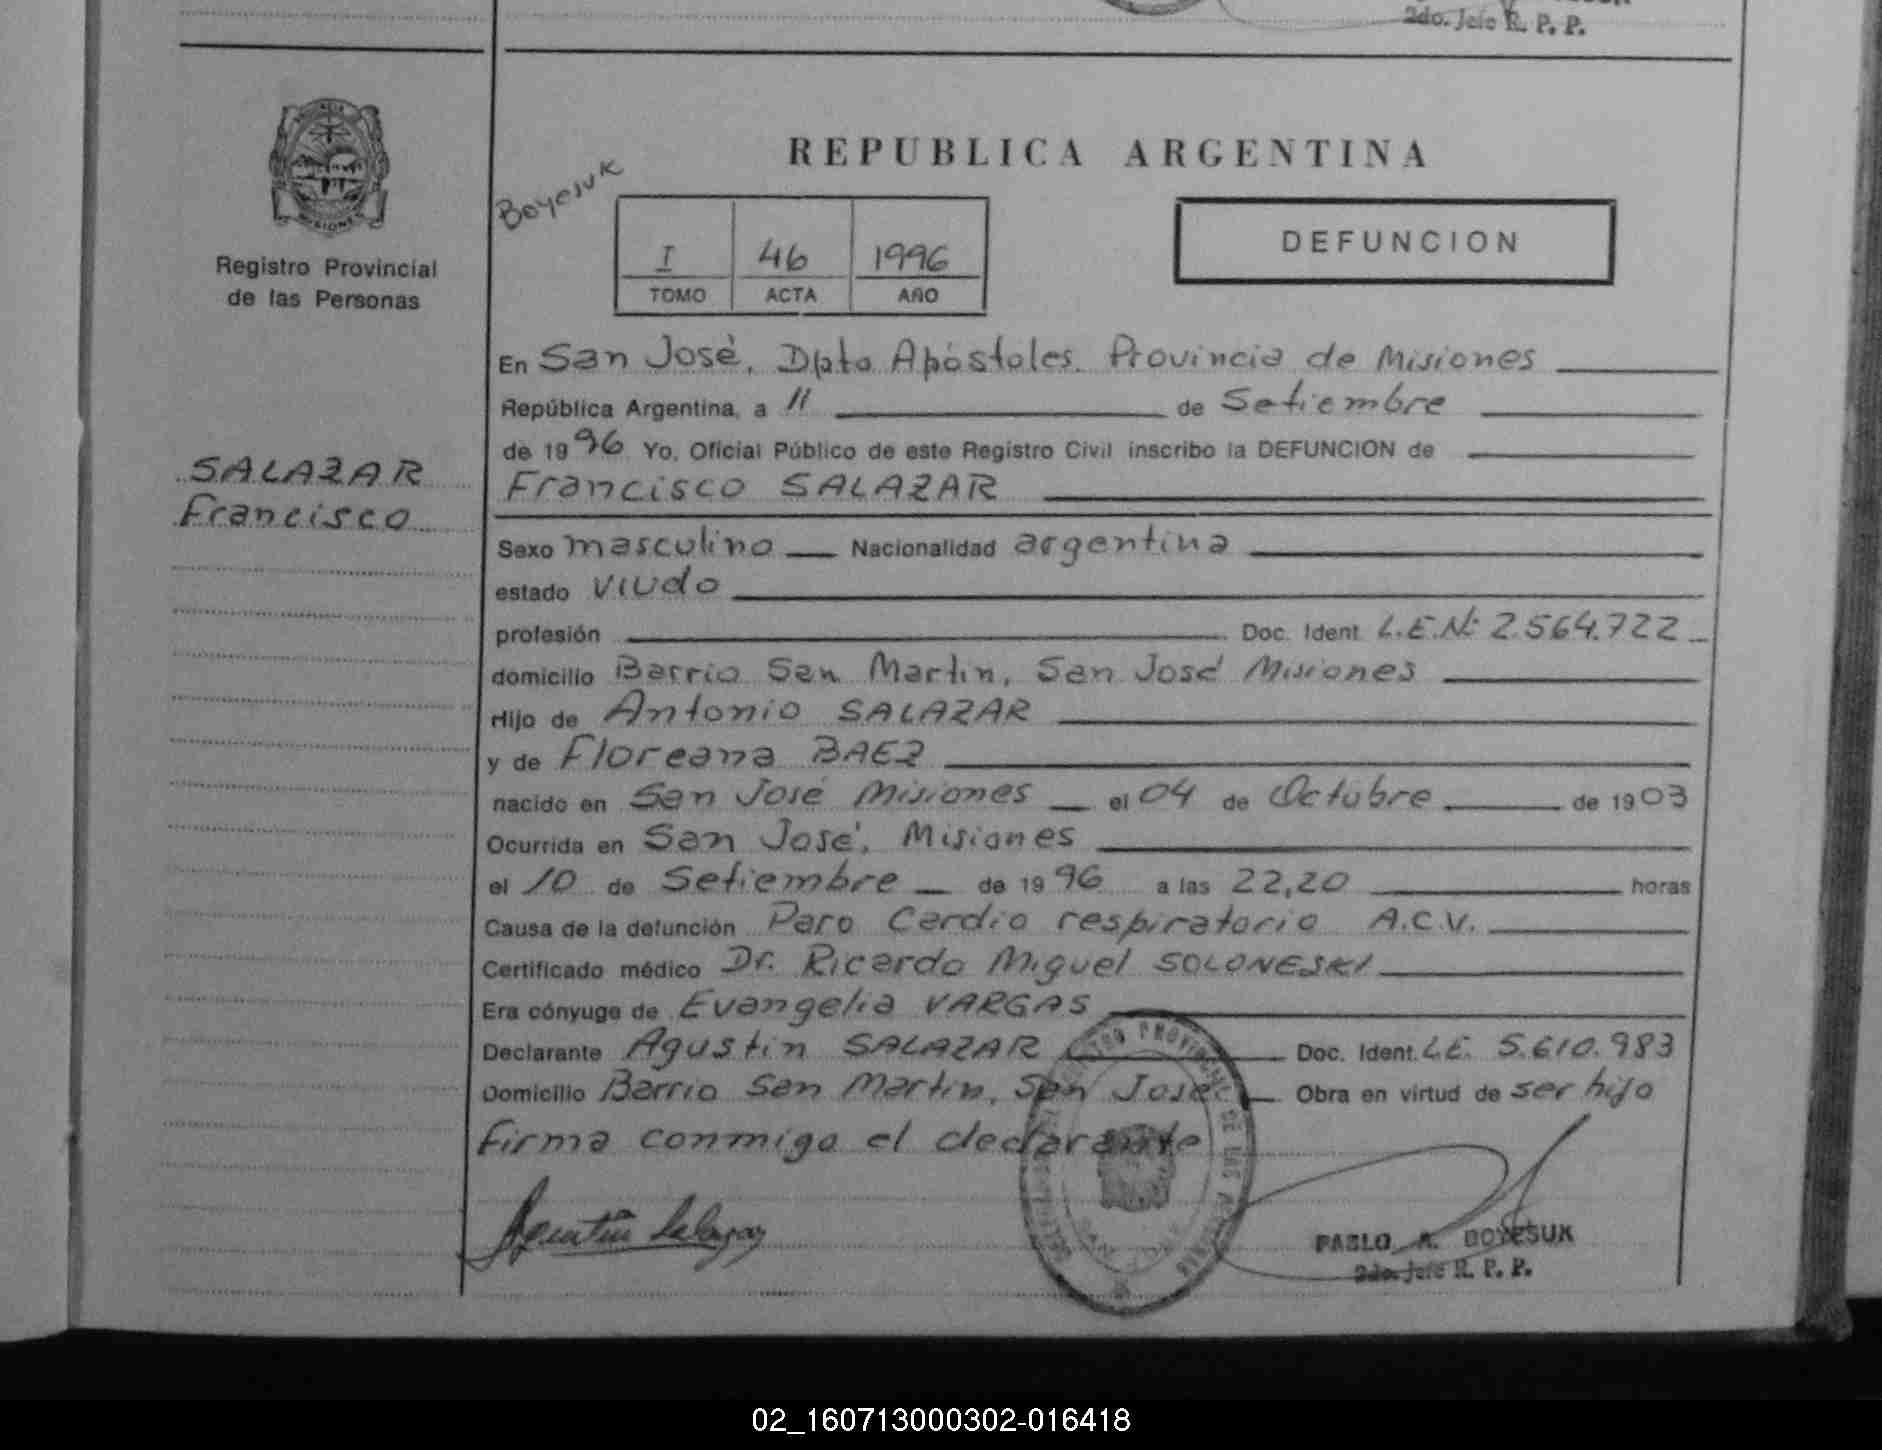 2do. Jefe R. P. P.
Registro Provincial
de las Personas
SALAZAR
Francisco
Boyesuk
REPUBLICA ARGENTINA
I 46 1996
TOMO ACTA AÑO
DEFUNCION
En San José, Dpto Apóstoles. Provincia de Misiones
República Argentina, a 11 de Setiembre
de 1996 Yo, Oficial Público de este Registro Civil inscribo la DEFUNCION de
Francisco SALAZAR
Sexo masculino Nacionalidad argentina
estado viudo
profesión Doc. Ident. L.E.Nº 2.564.722
domicilio Barrio San Martin, San José Misiones
Hijo de Antonio SALAZAR
y de Floreana BAEZ
nacido en San José Misiones el 04 de Octubre de 1903
Ocurrida en San José, Misiones
el 10 de Setiembre de 1996 a las 22,20 horas
Causa de la defunción Paro Cardio respiratorio A.C.V.
Certificado médico Dr. Ricardo Miguel SOLONESKI
Era cónyuge de Evangelia VARGAS
Declarante Agustin SALAZAR Doc. Ident. L.E. 5.610.983
Domicilio Barrio San Martin, San José Obra en virtud de ser hijo
Firma conmigo el declarante
Agustin Salazar
PABLO A. BOYESUK
2do. Jefe R. P. P.
02_160713000302-016418